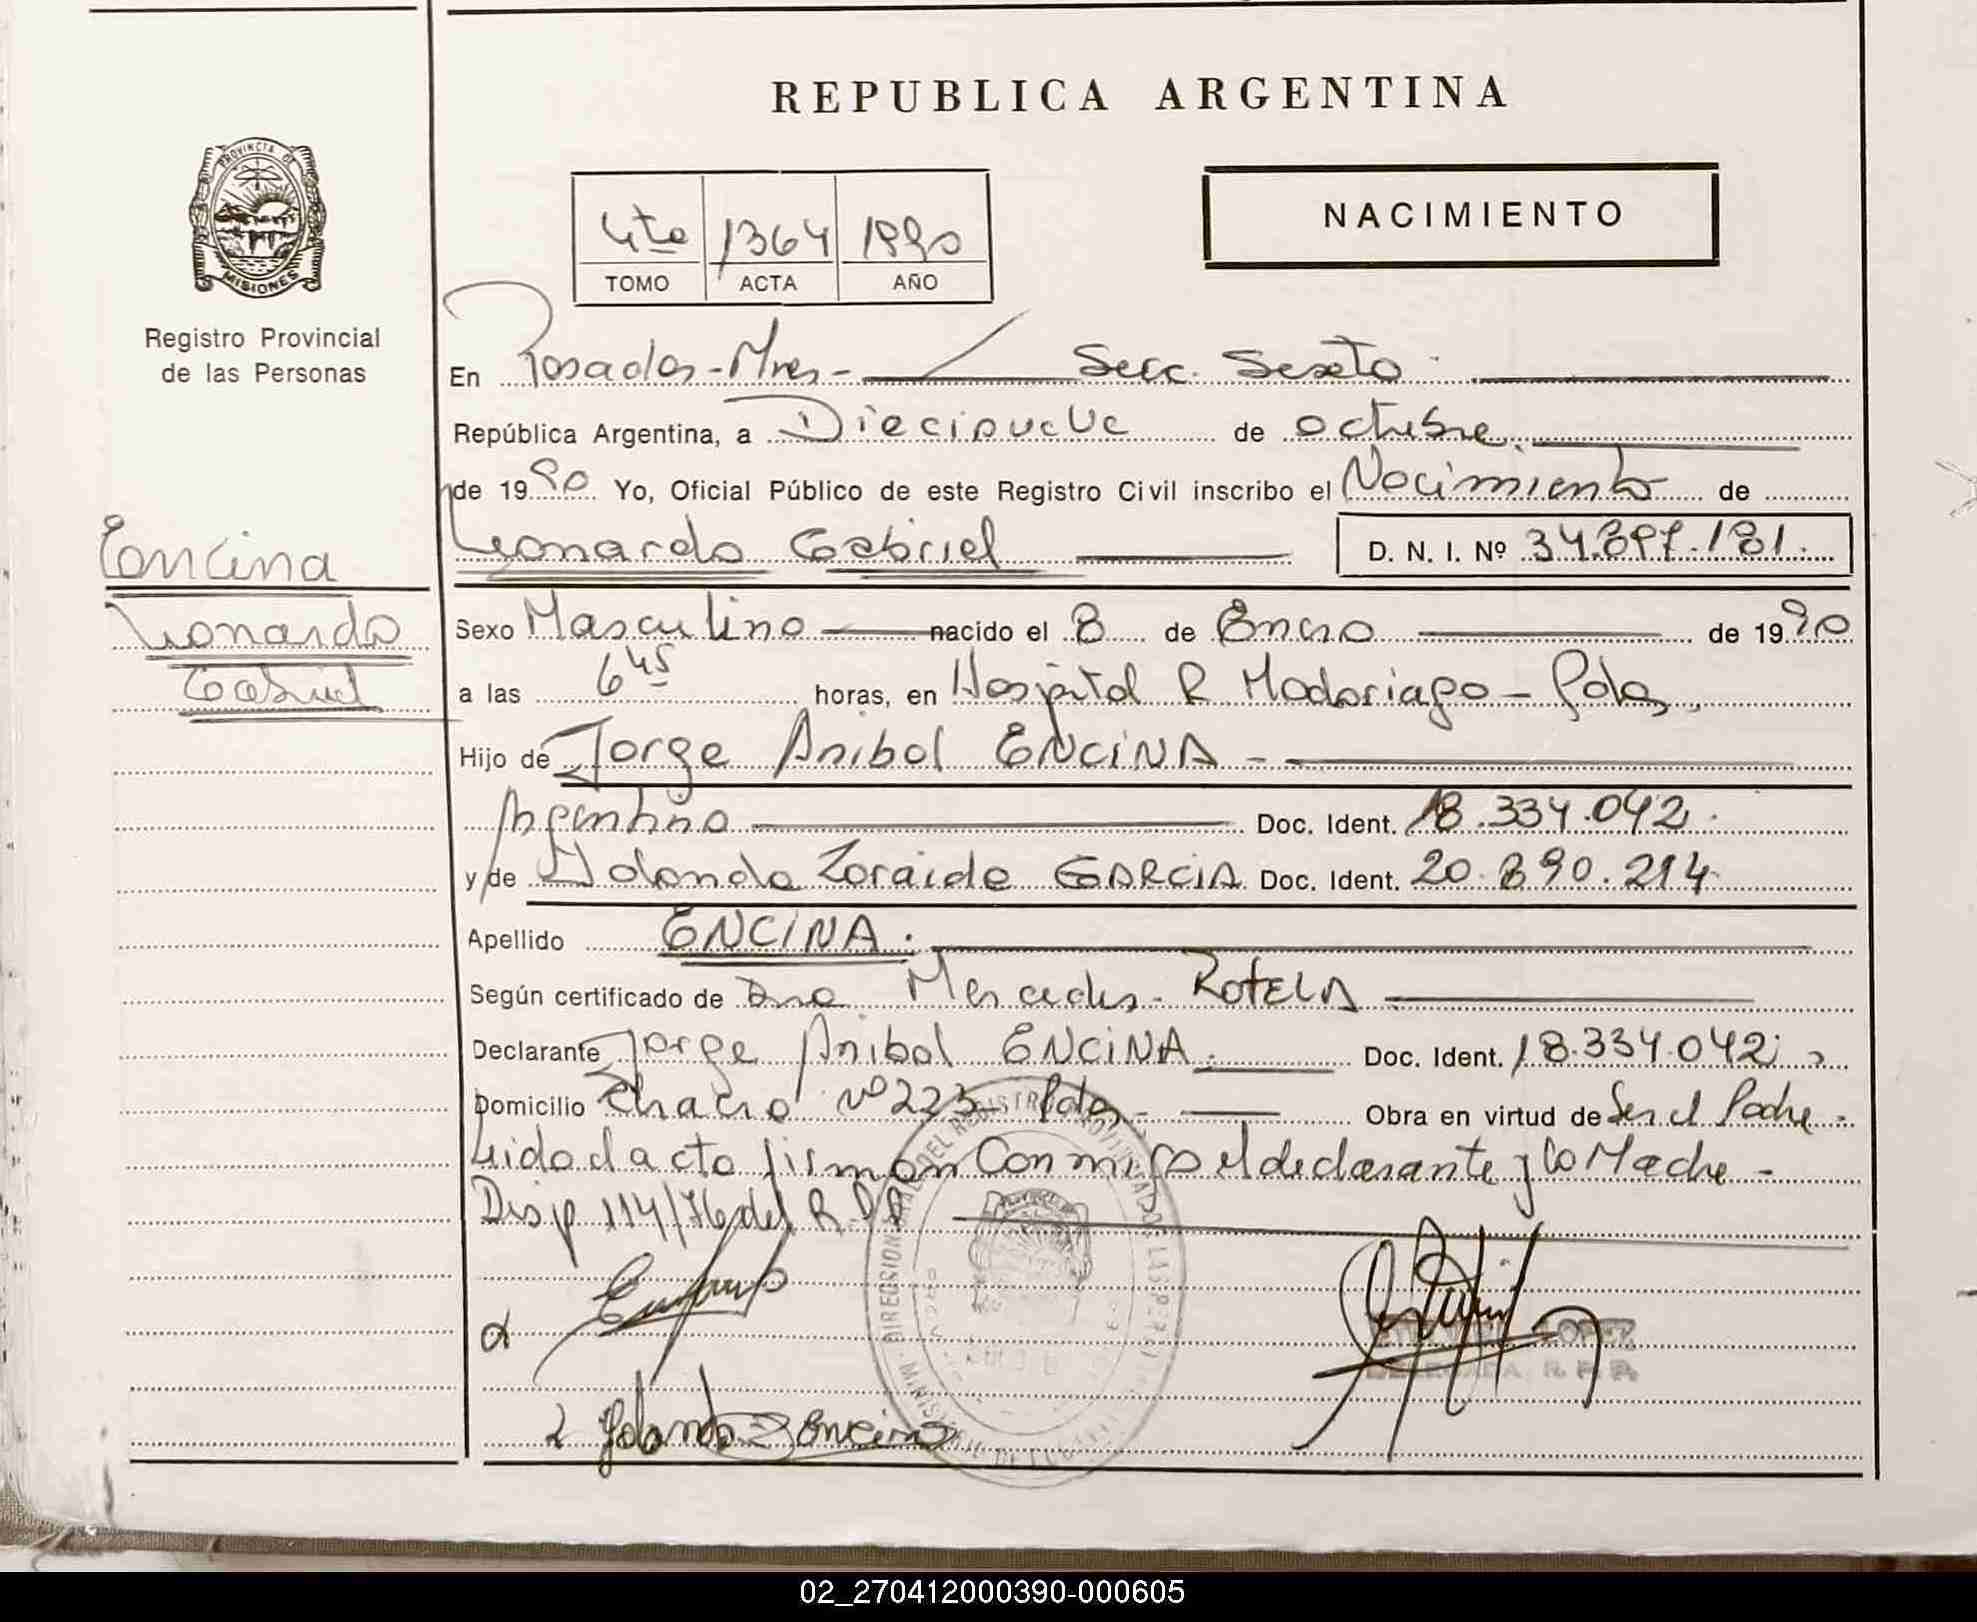 REPUBLICA ARGENTINA
PROVINCIA DE
MISIONES
Registro Provincial
de las Personas
4to 1364 1990
TOMO ACTA AÑO
NACIMIENTO
En Posadas-Mnes- Secc. Sexta
República Argentina, a Diecinueve de octubre
de 1990 Yo, Oficial Público de este Registro Civil inscribo el Nacimiento de
Leonardo Gabriel D. N. I. Nº 34.897.181.
Encina
Leonardo
Gabriel
Sexo Masculino nacido el 8 de Enero de 1990
a las 6 45 horas, en Hospital R. Madariaga - Pdas.
Hijo de Jorge Anibal ENCINA -
Argentino Doc. Ident. 18.334.042.
y de Yolanda Zoraida GARCIA Doc. Ident. 20.890.214
Apellido ENCINA.
Según certificado de Dra Mercedes - ROTELA
Declarante Jorge Anibal ENCINA. Doc. Ident. 18.334.042
Domicilio Chacra Nº 223 - Pdas - Obra en virtud de Ser el Padre -
Leido el acto firman conmigo el declarante y la Madre -
Disp 114/76 del R.P.P.
LOPEZ
DELEGADA R. P. P.
02_270412000390-000605